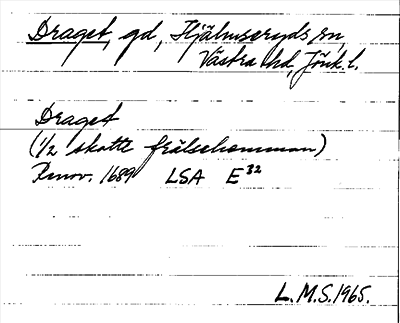 Draget, gd, Hjälmseryds sn,
Västra hd, Jönk. l.
Draget
(1/2 skatte frälsehemman)
Renov. 1689 LSA E 32
L.M.S. 1965.